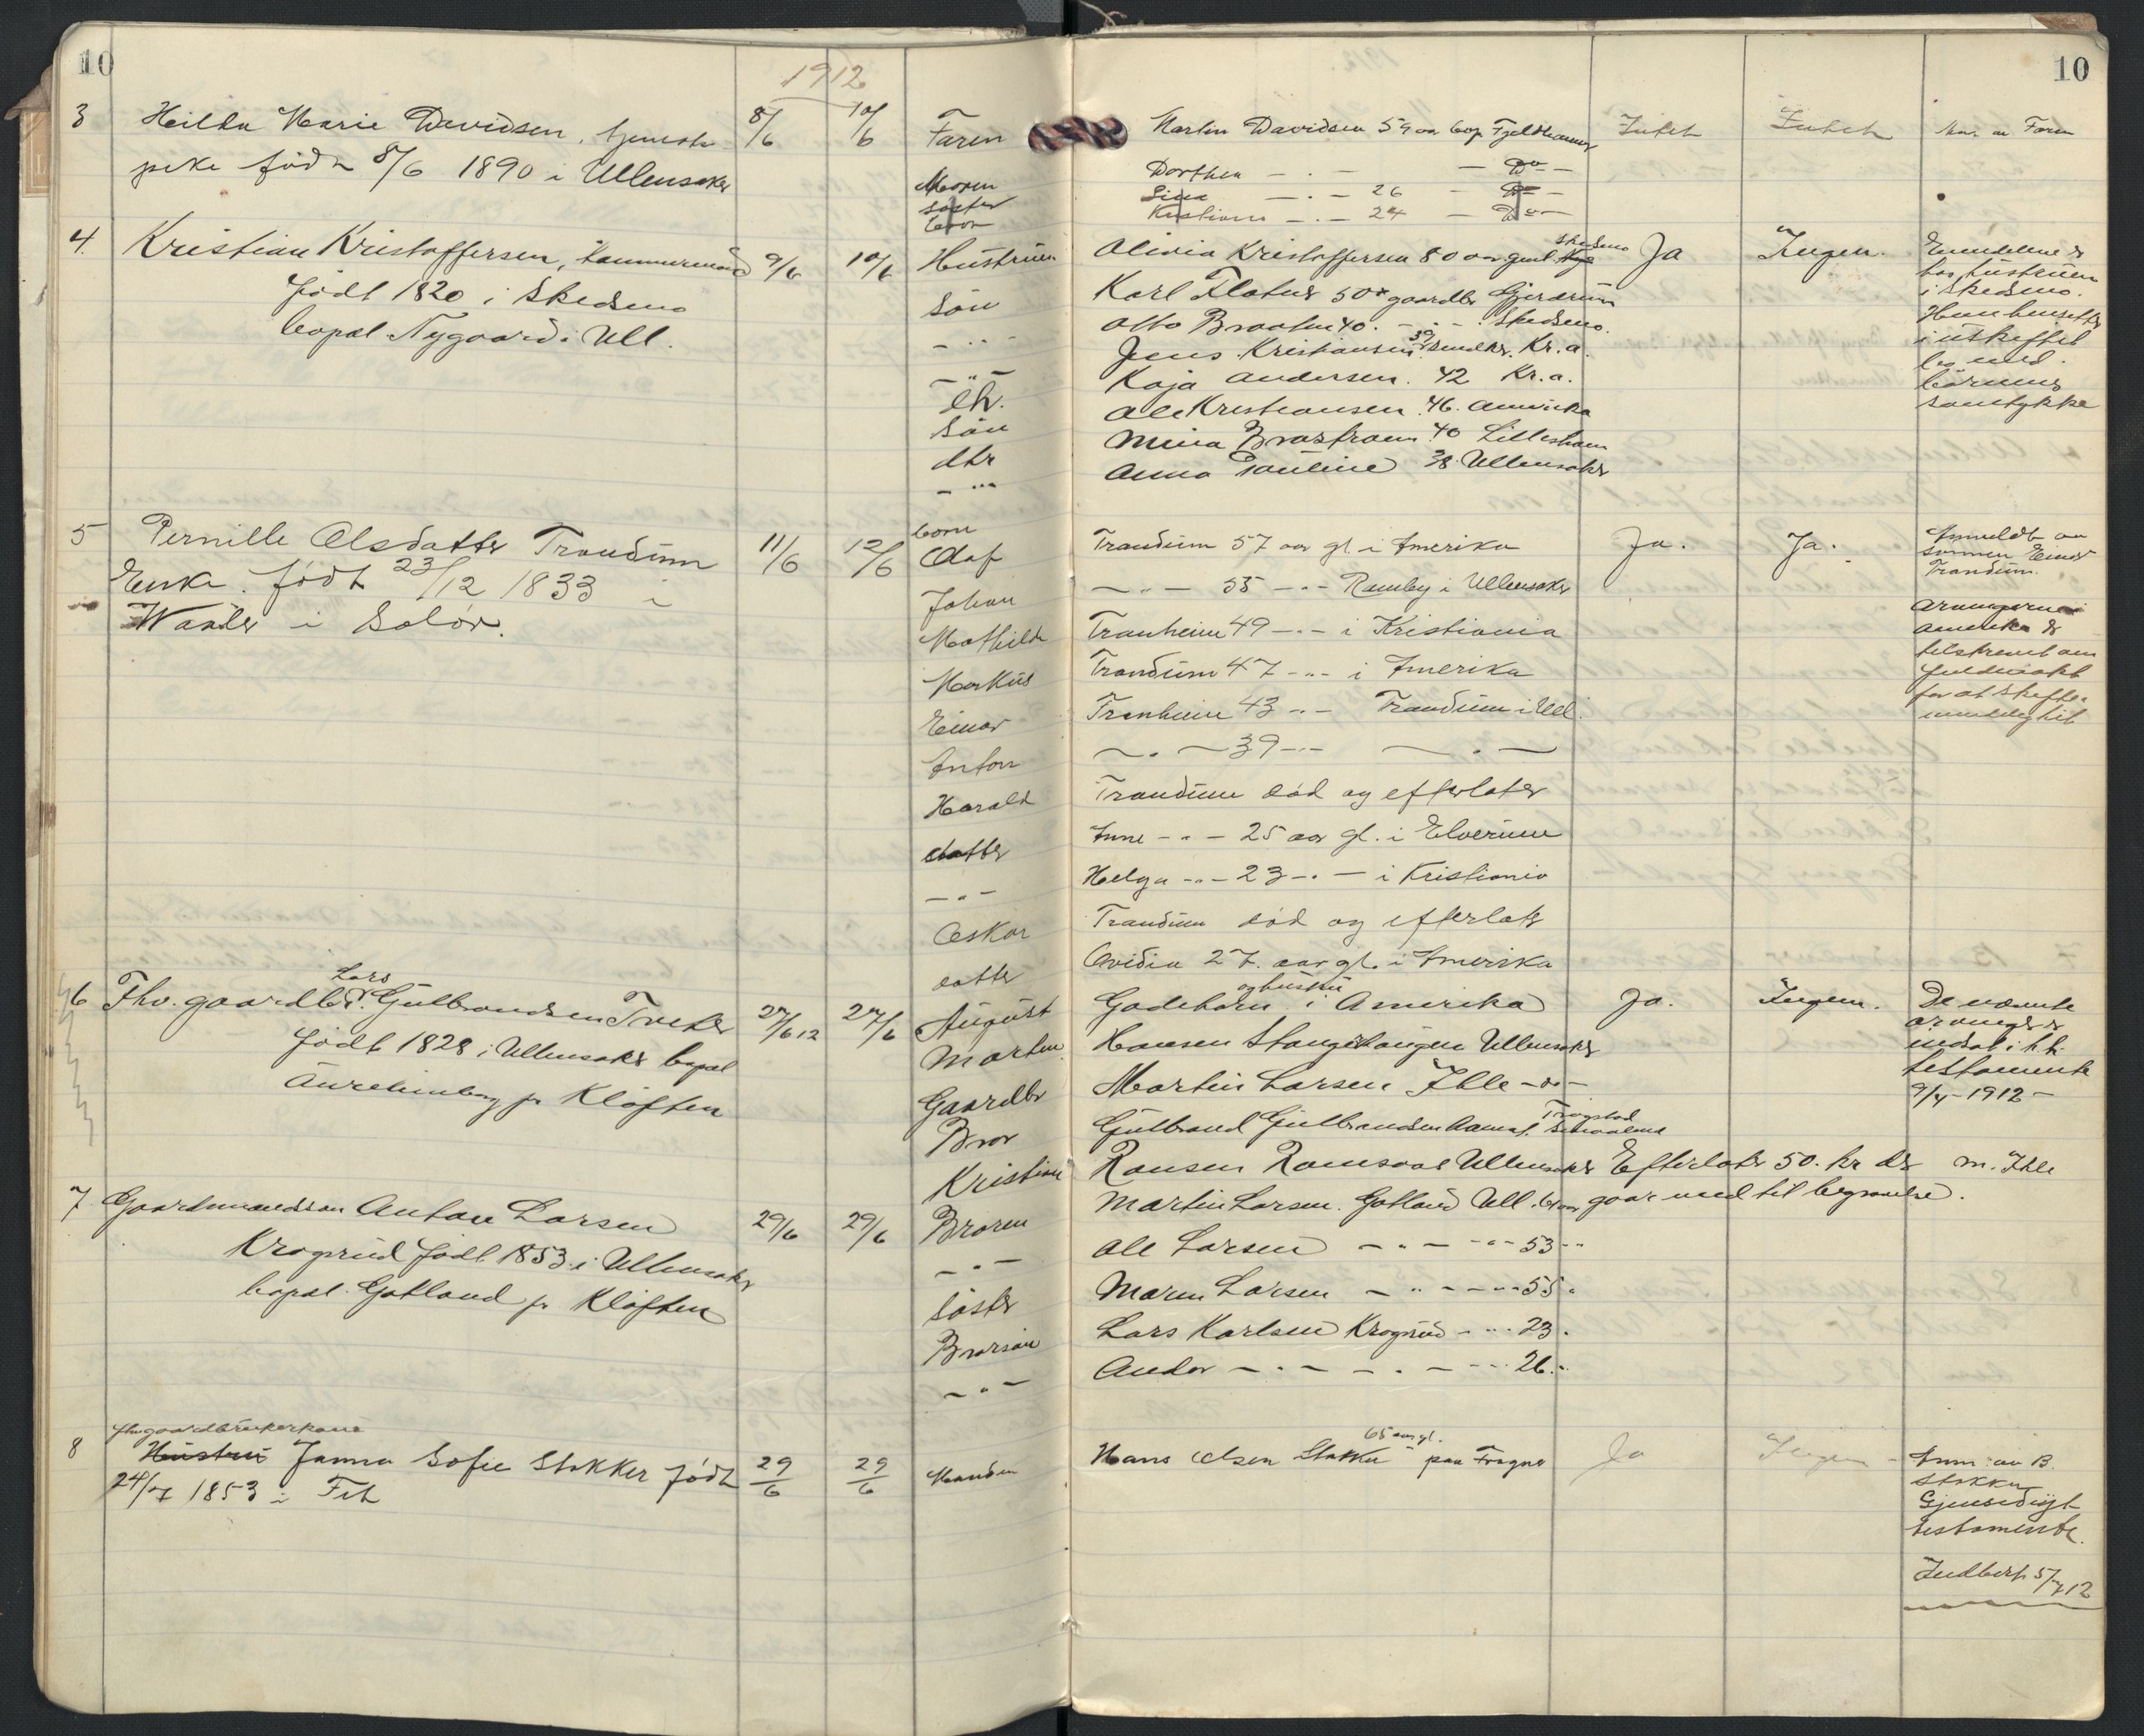 10
1912
10
3 Hilda Marie Davidsen, tjeneste 8/6 10/6 Faren Martin Davidsen 59 aar bop. Intet Intet Anm. av Faren
pike født 8/6 1890 i Ullensaker Moren Dorthea — " — — Do —
Søster — " — 26 — Do —
Kristian — " — 24 — Do —
4. Kristian Kristoffersen, tømmermand 9/6 10/6 Hustruen Olivia Kristoffersen 80 aar gml Skedsmo Ja Ingen.
Født 1820 i Skedsmo Søn Karl Flatner 50 gaardbr Gjerdrum hos hustruen
bopæl Nygaard i Ull. — " — Otto Braaten 40. — " — Skedsmo. i Skedsmo.
— " — Jens Kristiansen 39 Kr.a. Hun hensitter
Dtr. Kaja Andersen. 42 Kr.a. i uskiftet
Søn Ole Kristiansen. 46. Amerika bo med
dtr 40 børnenes
— " — Anna Pauline 38. Ullensaker samtykke
5 Pernille Olsdatter Trandum 11/6 12/6 barn
Olaf Trandum 57 aar gl i Amerika Ja. Ja. Anmeldt av
sønnen Einar
Trandum.
Enke. født 23/12 1833 i Johan — " — 55 — " — i Ullensaker
Vaaler i Solør. Mathilde Tranheim 49 — " — i Kristiania Arvingerne i
Amerika er
tilskrevet om
Markus Trandum 47 — " — i Amerika fuldmakt
Einar Tranheim 43 — " — Trandum i Ull. for at skifte
Anton — " — 39 — " — — " —
Harald Trandum død og efterlater
datter Anne — " — 25 aar gl. i Elverum
— " — Helga — " — 23 — " — i Kristiania
Oskar Trandum død og efterlater
datter Ovidia 27. aar gl. i Amerika
6 Fhv. gaardbr. Lars Gulbrandsen Tveter 27/6 12 27/6 August Godeborn og hustru i Amerika Ja. Ingen. De nævnte
arvinger er
født 1828 i Ullensaker bopæl Martin Hansen Ullensaker indsat i h.h.
testamente
p. Kløften Gaardbr Martin Larsen Ihle — do — 9/4 - 1912 -
Bror Gulbrand Gulbrandsen Trøgstad
Kristian Hansen Ramsaas Ullensaker Efterlater 50. kr der M. Ihle
7 Gaardmandssøn Anton Larsen 29/6 29/6 Broren Martin Larsen. Gotland Ull. gaar med til begravelse.
Krogsrud født 1853 i Ullensaker — " — Ole Larsen — " — — " — 53 — " —
bopæl Gotland p. Kløften Søster Maren Larsen — " — — " — 55 "
Brorsøn Lars Karlsen Krogsrud — " — 23.
— " — Andor — " — — " — 26 "
8 fhv gaardbrukerkone
Hustru Janna Sofie Stokker født 29/6 29/6 Manden Hans Olsen Stokker 65 aar gl. paa Frogner Ja Ingen Anm. av B.
Stokker
24/7 1853 i Fet Gjensidigt
testamente.
Indbert. 5/7 12